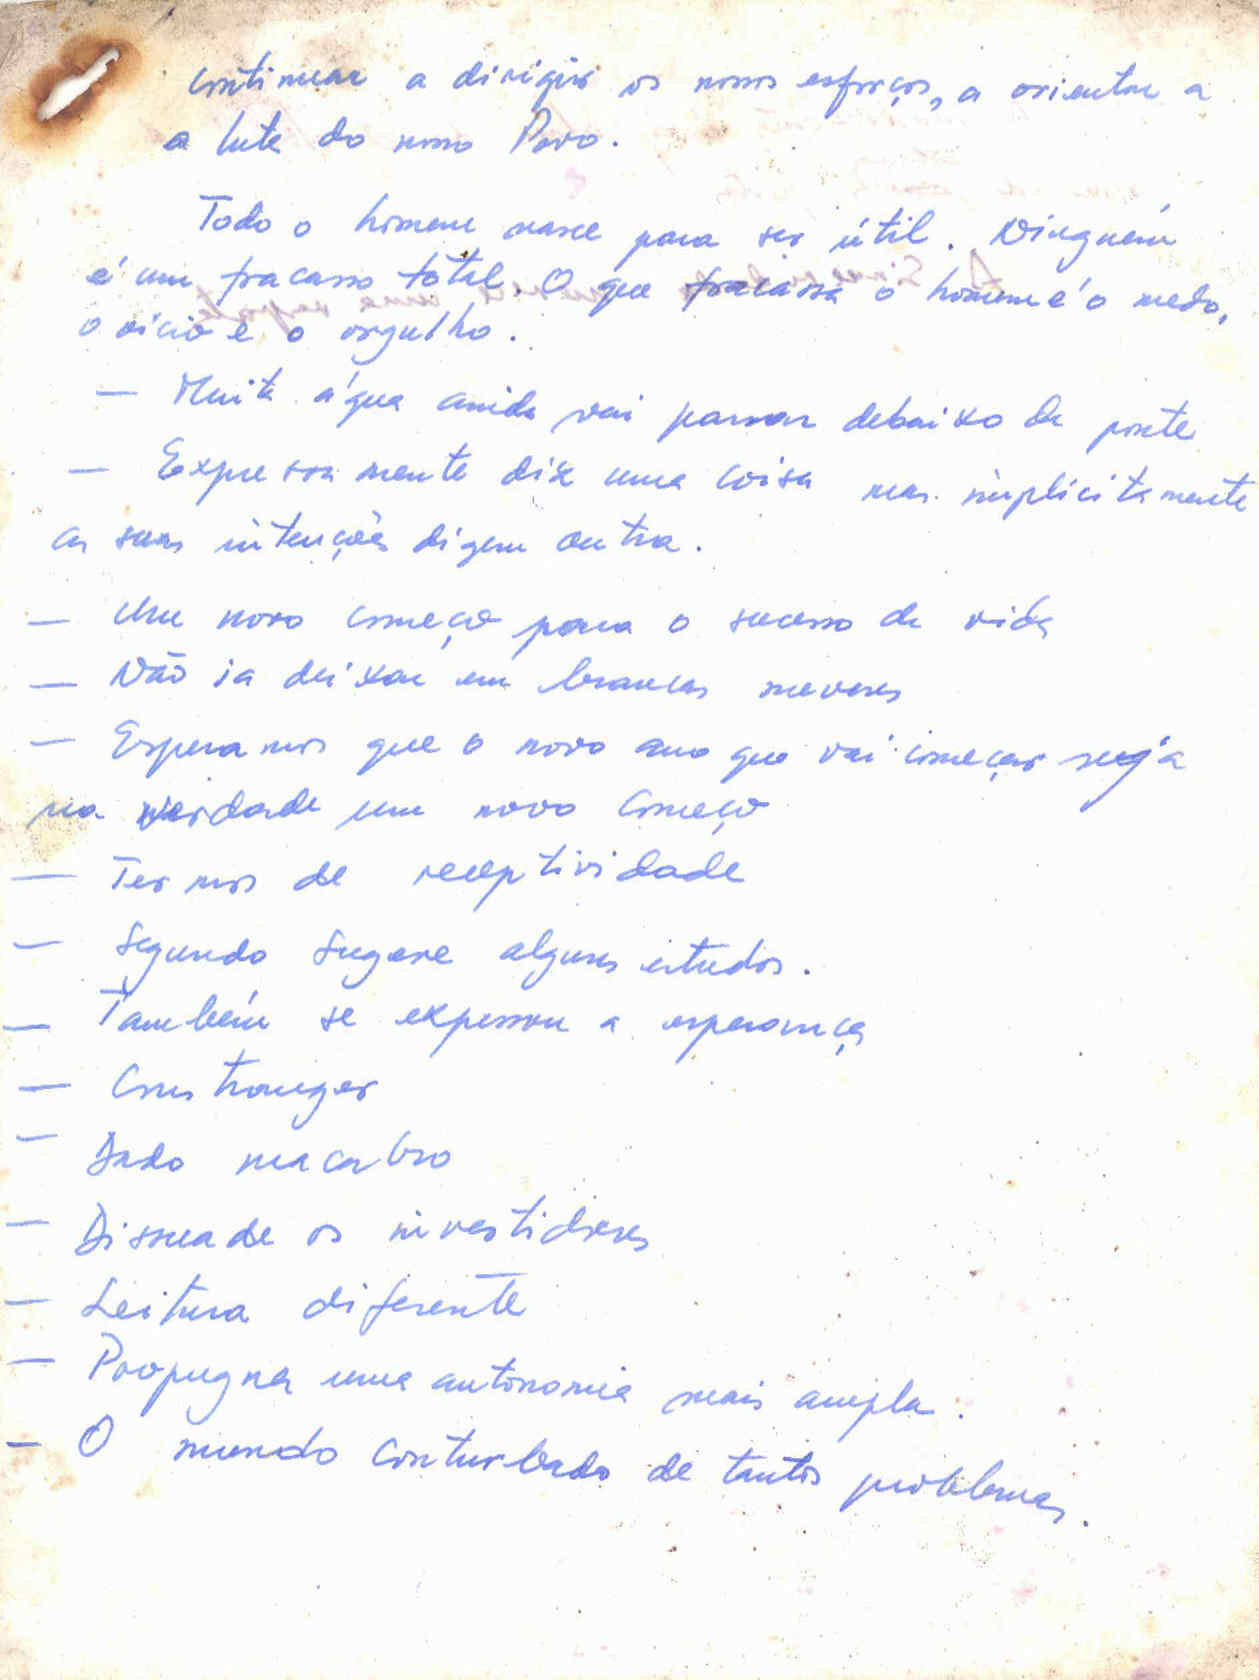 continuar a dirigir os nossos esforços, a orientar a
a luta do nosso Povo.
Todo o homem nasce para ser útil. Ninguém
é um fracasso total. O que fracassa o homem é o medo,
o vício e o orgulho.
— Muita água ainda vai passar debaixo da ponte
— Expressamente diz uma coisa mas implicitamente
as suas intenções dizem outra.
— Um novo começo para o sucesso da vida
— Não ia deixar em brancas
— Esperamos que o novo ano que vai começar seja
na verdade um novo começo
— Termos de receptividade
— Segundo sugere alguns estudos.
— Também se expressou a esperança
— Constranger
— Dado macabro
— Dissuade os investidores
— Leitura diferente
— Propugna uma autonomia mais ampla.
— O mundo conturbado de tantos problemas.